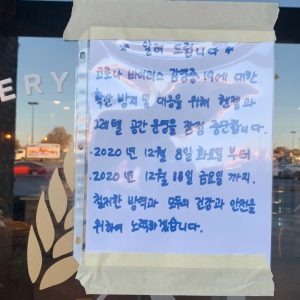 ERY
* 알려 드립니다 *
코로나 바이러스 감염증-19에 대한
확산 방지 및 대응을 위해
공간 운영을 잠정 중단합니다.
.2020년 12월 8일 화요일부터
.2020년 12월 18일 금요일 까지.
철저한 방역과 모두의 건강과 안전을
위하여 노력하겠습니다.